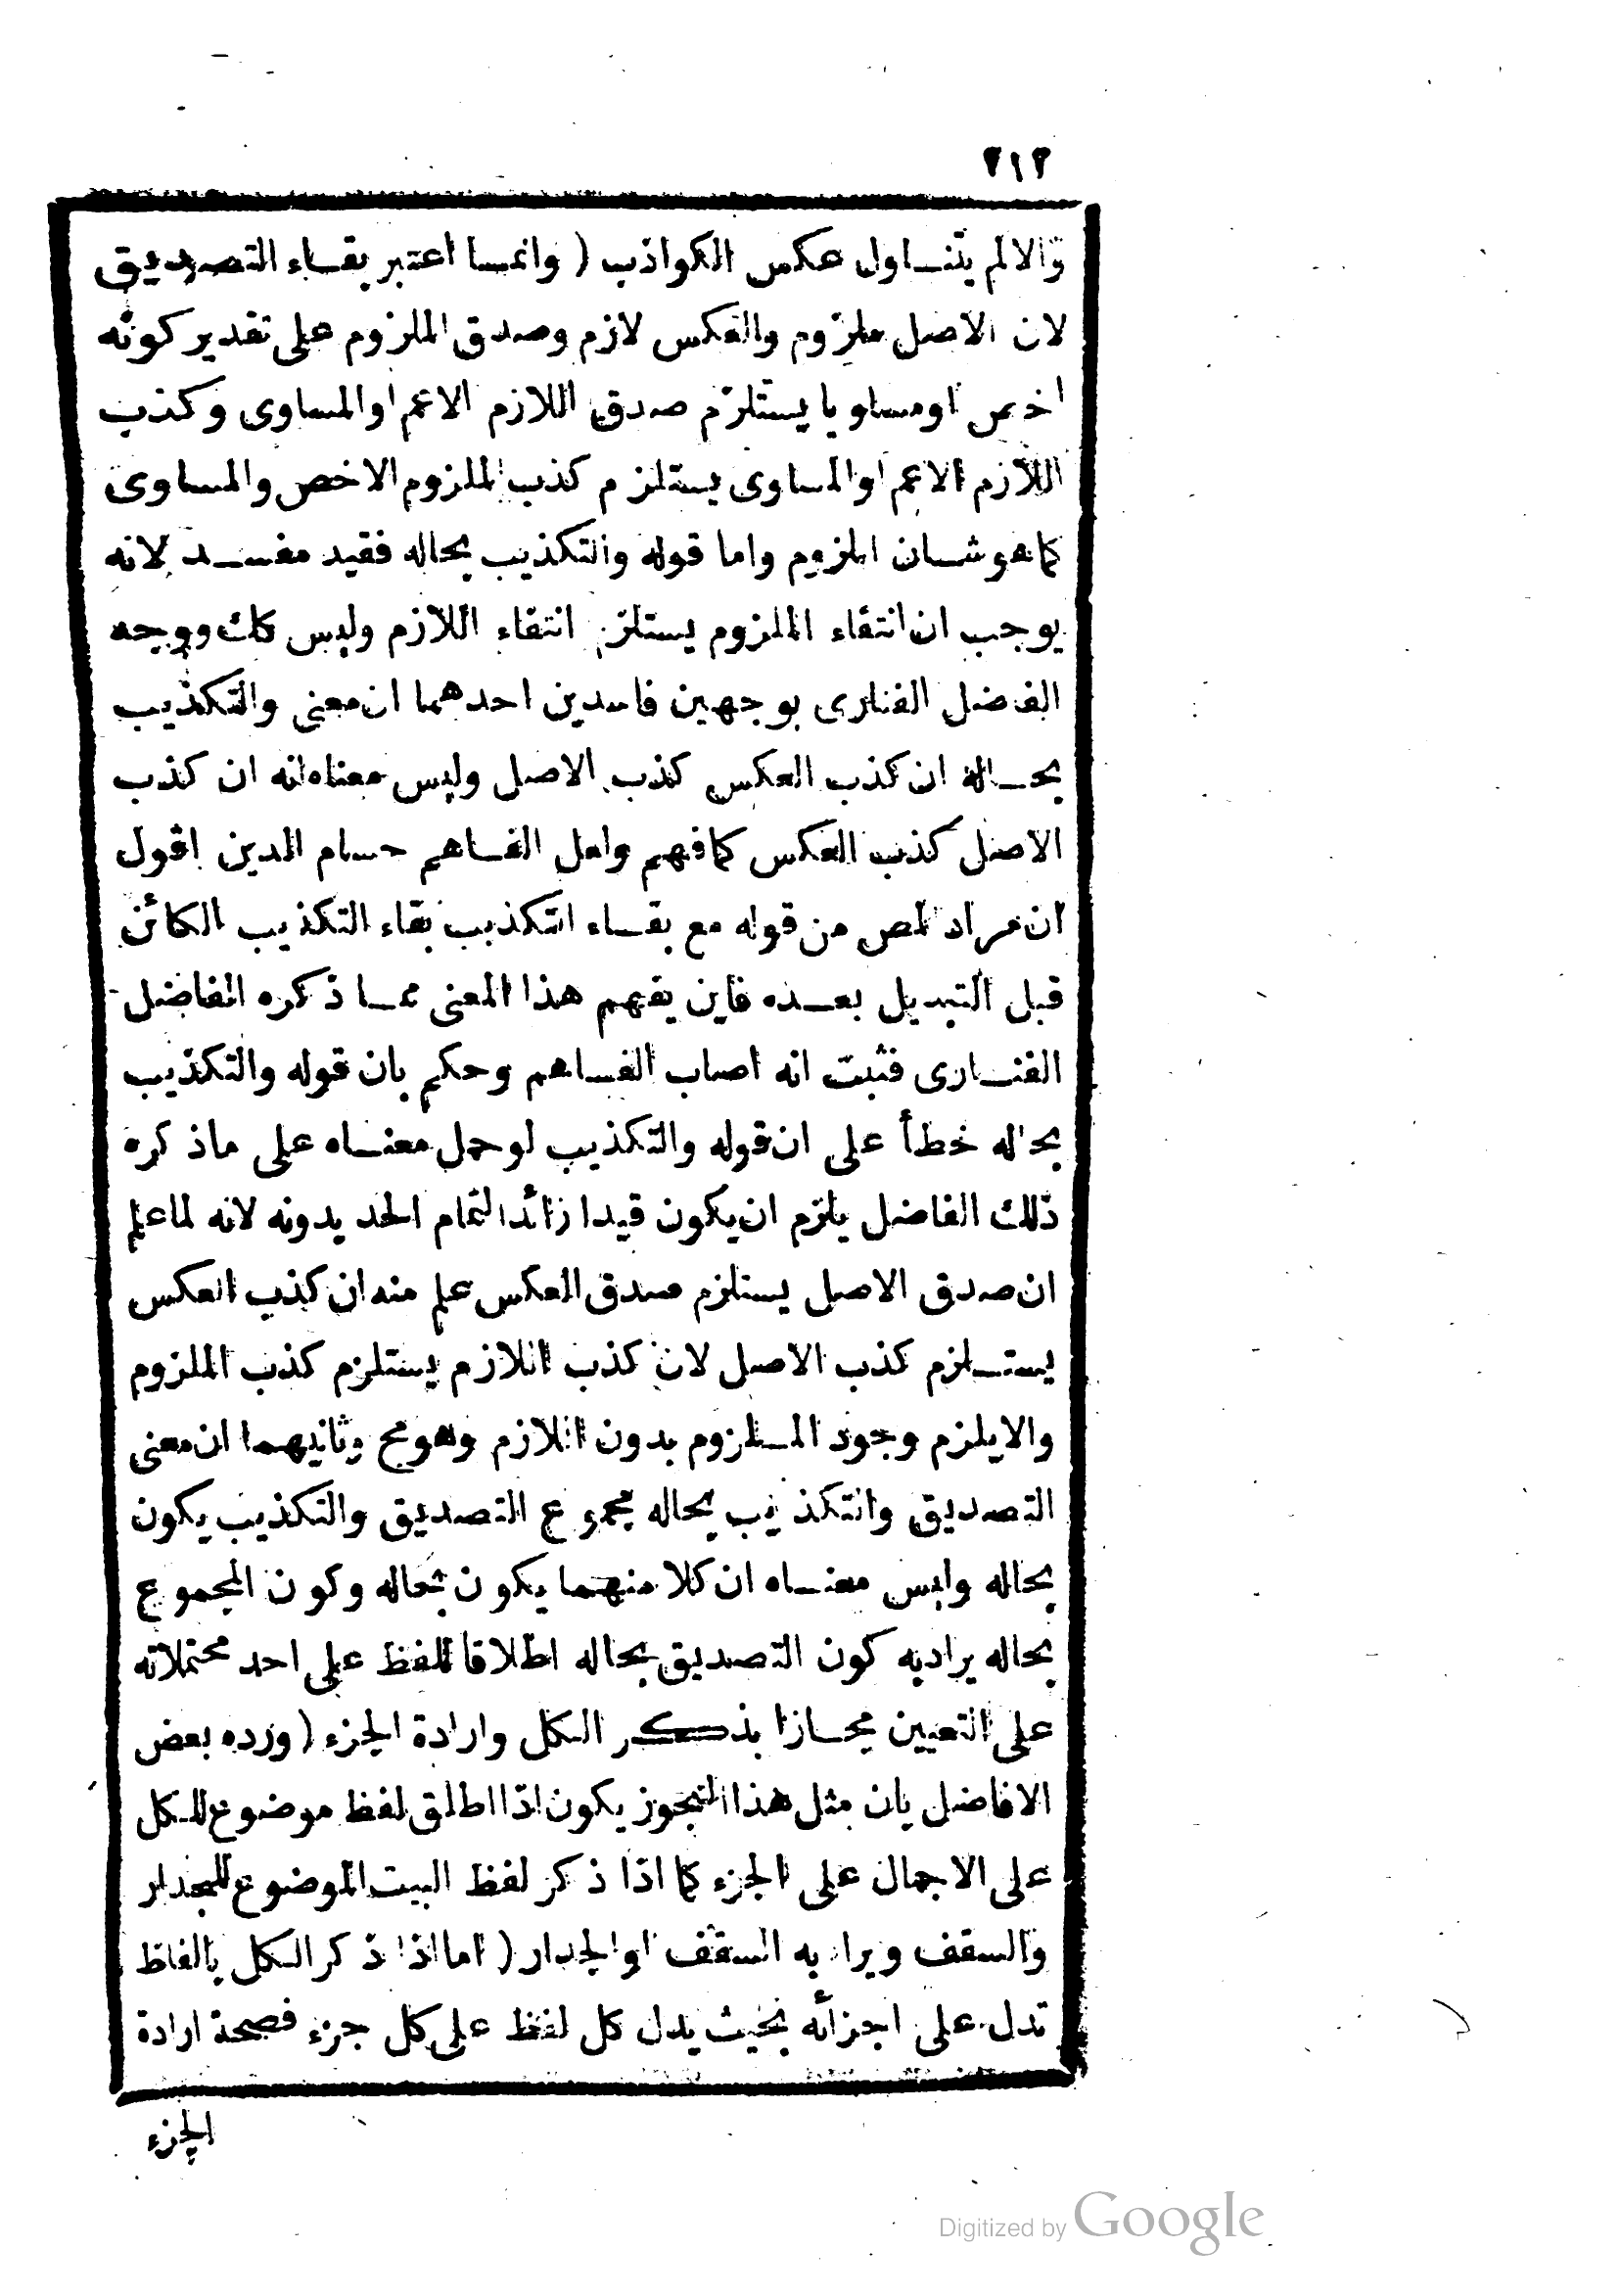 ٢١٢
والالم يتناول عكس الكواذب ( وانما اعتبر بقاء التصديق
لان الاصل ملزوم والعكس لازم وصدق الملزوم على تقدير كونه
اخص اومساويا يستلزم صدق اللازم الاعم اوالمساوى وكذب
اللازم الاعم اوالمساوى يستلزم كذب الملزوم الاخص والمساوى
كاهوشان الملزوم واما قوله والتكذيب بحاله فقيد مفسد لانه
يوجب ان انتفاء الملزوم يستلزم انتفاء اللازم وليس كك ووجهه
الفاضل الفنارى بوجهين فاسدين احدهما ان معنى والتكذيب
بحاله ان كذب العكس كذب الاصل وليس معناه انه ان كذب
الاصل كذب العكس كمافهم ولعل الفاهم حسام الدين اقول
ان مراد المص من قوله مع بقاء التكذيب بقاء التكذيب الكائن
قبل التبديل بعده فاين يفهم هذا المعنى مما ذكره الفاضل
الفنارى فثبت انه اصاب الفاهم وحكم بان قوله والتكذيب
بحاله خطأ على ان قوله والتكذيب لوحمل معناه على ماذكره
ذلك الفاضل يلزم ان يكون قيدا زائدا لتمام الحد بدونه لانه لماعلم
ان صدق الاصل يستلزم صدق العكس علم منه ان كذب العكس
يستلزم كذب الاصل لان كذب اللازم يستلزم كذب الملزوم
والايلزم وجود الملزوم بدون اللازم وهومح وثانيهما ان معنى
التصديق والتكذيب بحاله مجموع التصديق والتكذيب يكون
بحاله وليس معناه ان كلا منهما يكون بحاله وكون المجموع
بحاله يرادبه كون التصديق بحاله اطلاقا للفظ على احد محتملاته
على التعيين مجازا بذكر الكل وارادة الجزء ( ورده بعض
الافاضل بان مثل هذا التجوز يكون اذا اطلق لفظ موضوع للكل
على الاجمال على الجزء كما اذا ذكر لفظ البيت الموضوع للجدار
والسقف ويراد به السقف اوالجدار ( امااذا ذكرالكل بالفاظ
تدل على اجزائه بحيث يدل كل لفظ على كل جزء فصحة ارادة
الجزء
Digitized by Google